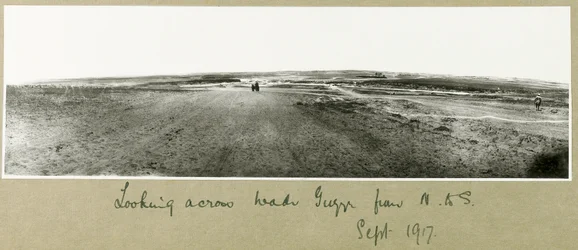 Looking across Wadi Guzze from N. to S.
Sept 1917.